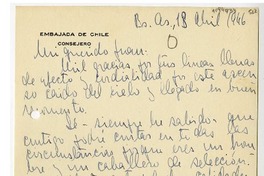 Bs. As, 18 Abril 1946
EMBAJADA DE CHILE
CONSEJERO
Mi querido Juan:
Mil gracias por tus líneas llenas
de afecto y cordialidad por este ascen
so caído del cielo y llegado en buen
momento.
Sé siempre he sabido que
contigo podré contar en todas las
circunstancias porque eres un hom
bre y un caballero de selección.